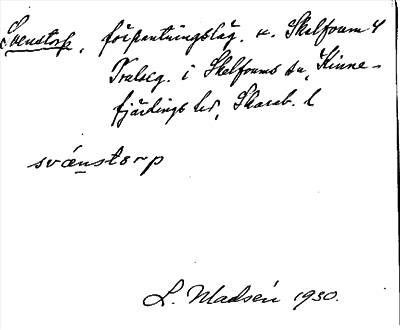 Svenstorp, förpantningsläg. u. Skelfvum 4
Kvalseg. i Skelfvums sn, Kinne-
fjärdings hd, Skarab. l
svǽnstorp
L. Madsén 1930.